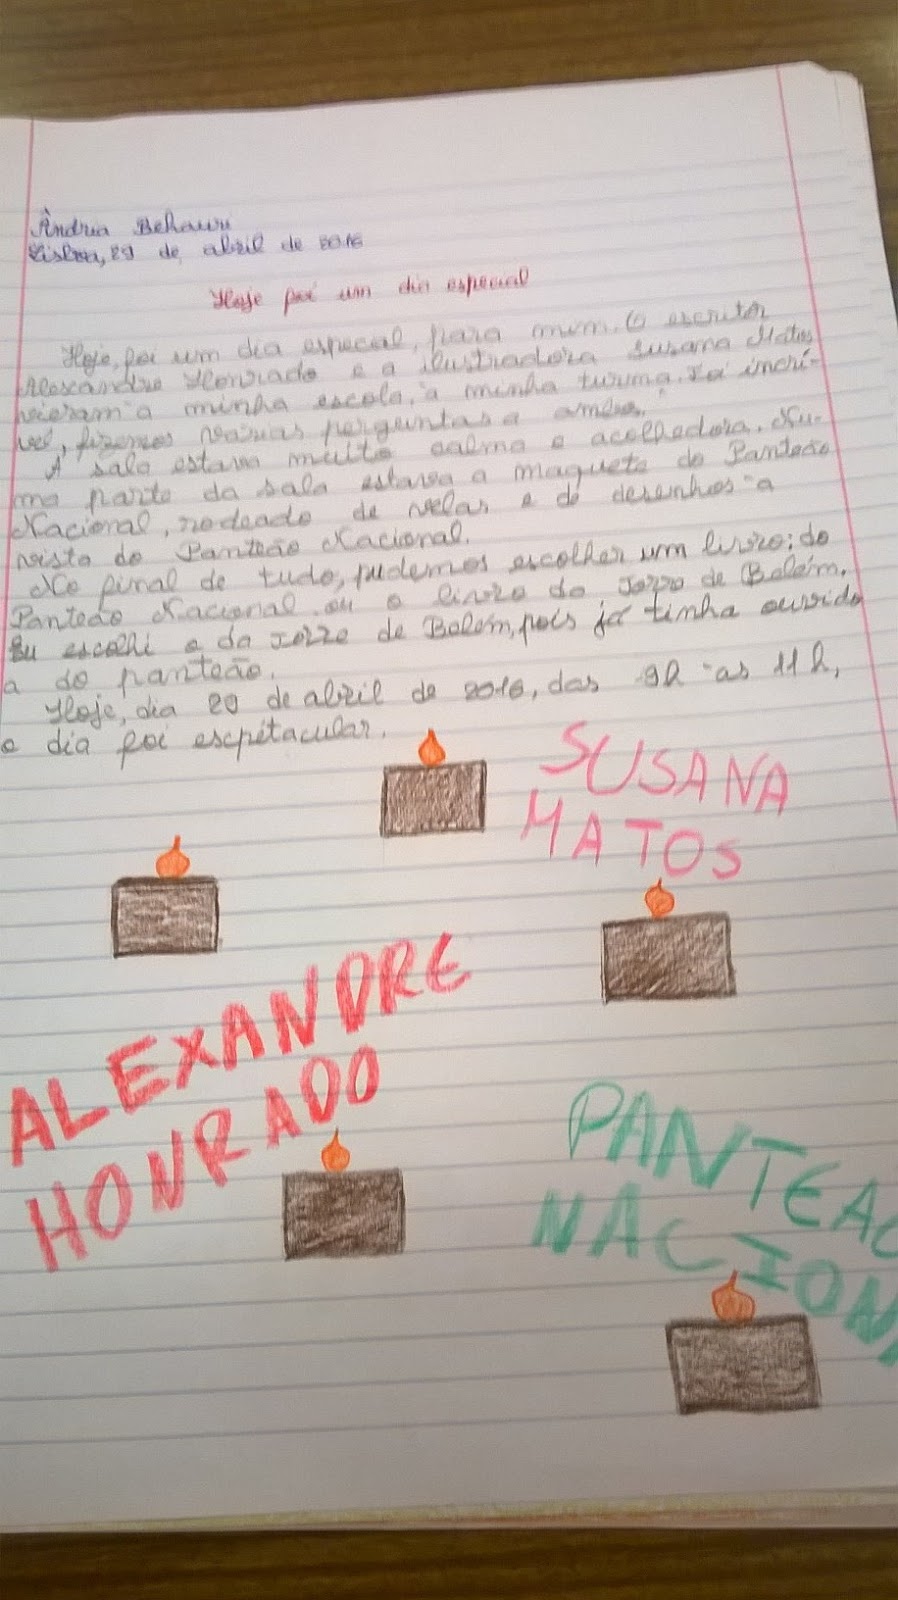 Ândria
Lisboa, 29 de abril de 2016
Hoje foi um dia especial
Hoje, foi um dia especial, para mim. O escritor
Alexandre Honrado e a ilustradora Susana Matos
vieram a minha escola, à minha turma. Foi incrí-
vel, fizemos várias perguntas a ambos.
A sala estava muito calma e acolhedora. Nu-
ma parte da sala estava a maquete do Panteão
Nacional, rodeado de velas e de desenhos à
vista do Panteão Nacional.
No final de tudo, pudemos escolher um livro: do
Panteão Nacional ou o livro da Torre de Belém.
Eu escolhi o da Torre de Belém, pois já tinha ouvido
o do panteão.
Hoje, dia 29 de abril de 2016, das 9h às 11h,
o dia foi espétacular.
SUSANA
MATOS
ALEXANDRE
HONRADO
PANTEAO
NACIONA